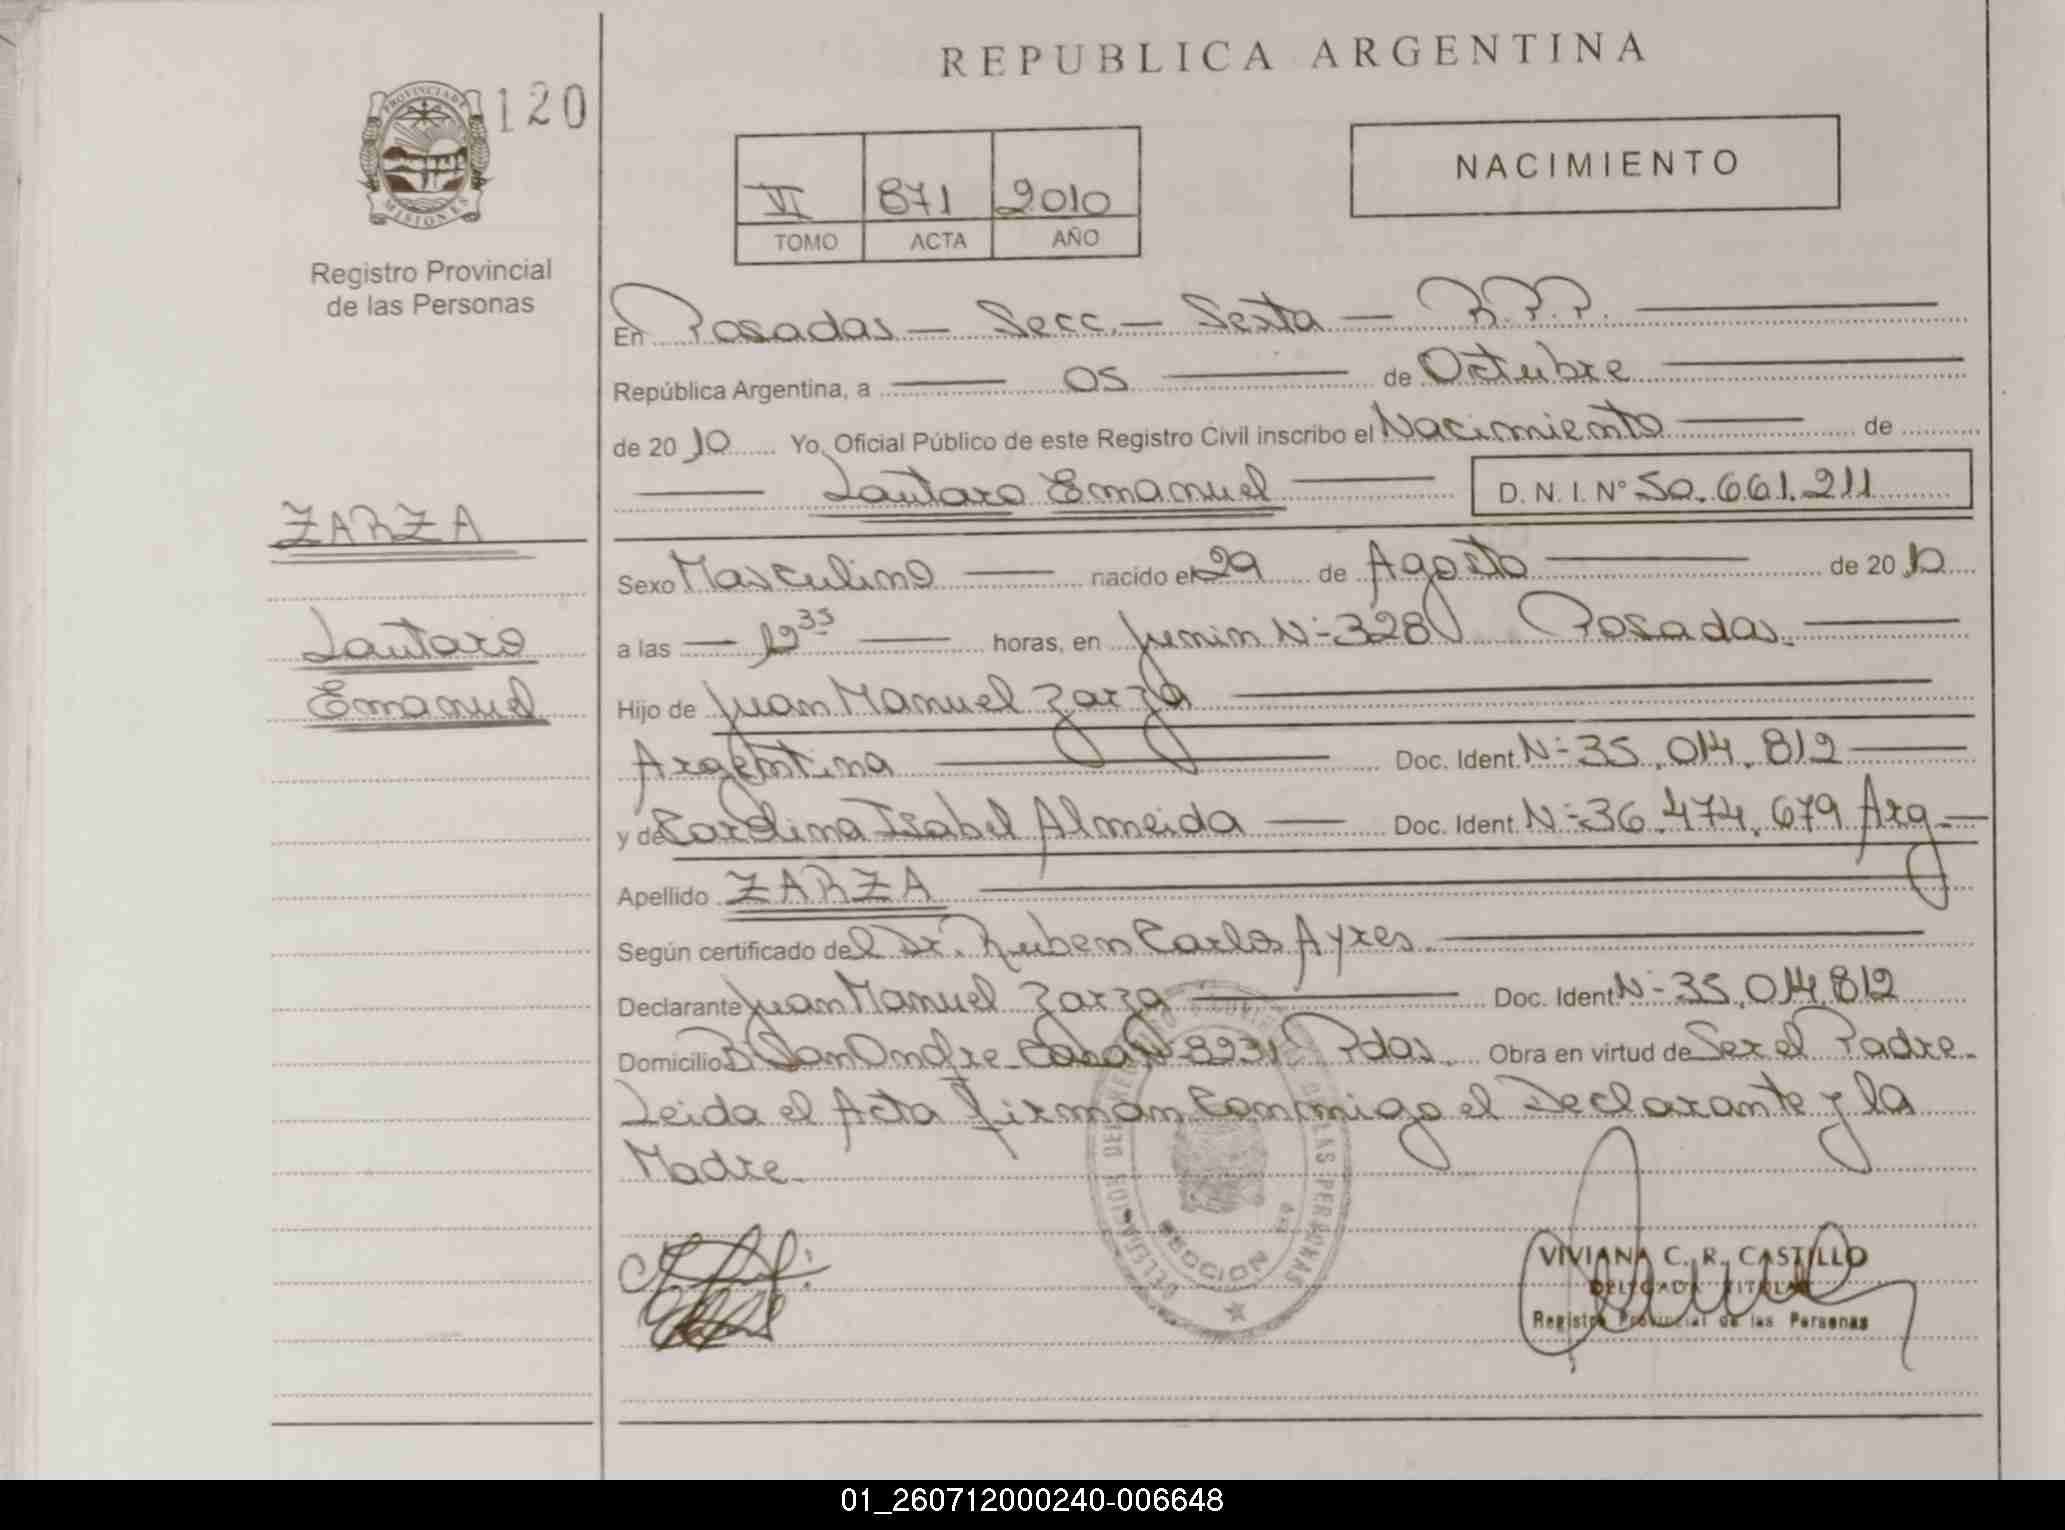 REPUBLICA ARGENTINA
PROVINCIA DE
MISIONES
120
Registro Provincial
de las Personas
VI 871 2010
TOMO ACTA AÑO
NACIMIENTO
En Posadas — Secc. — Sexta — R.P.P.
República Argentina, a — 05 — de Octubre
de 2010 Yo, Oficial Público de este Registro Civil inscribo el Nacimiento — de
— Lautaro Emanuel — D. N. I. N° 50.661.211
ZARZA
Lautaro
Emanuel
Sexo Masculino — nacido el 29 de Agosto — de 2010
a las — 12 35 — horas, en Junin N- 328 Posadas. —
Hijo de Juan Manuel Zarza —
Argentina — Doc. Ident. N- 35.014.812 —
y de Carolina Isabel Almeida — Doc. Ident. N- 36.474.679 Arg —
Apellido ZARZA —
Según certificado del Dr. Ruben Carlos Ayres —
Declarante Juan Manuel Zarza — Doc. Ident. N- 35.014.812
Domicilio Casa N- Pdas. Obra en virtud de Ser el Padre.
Leida el Acta firman Conmigo el Declarante y la
Madre.
SECCION
VIVIANA C. R. CASTILLO
DELEGADA TITULAR
Registro Provincial de las Personas
01_260712000240-006648